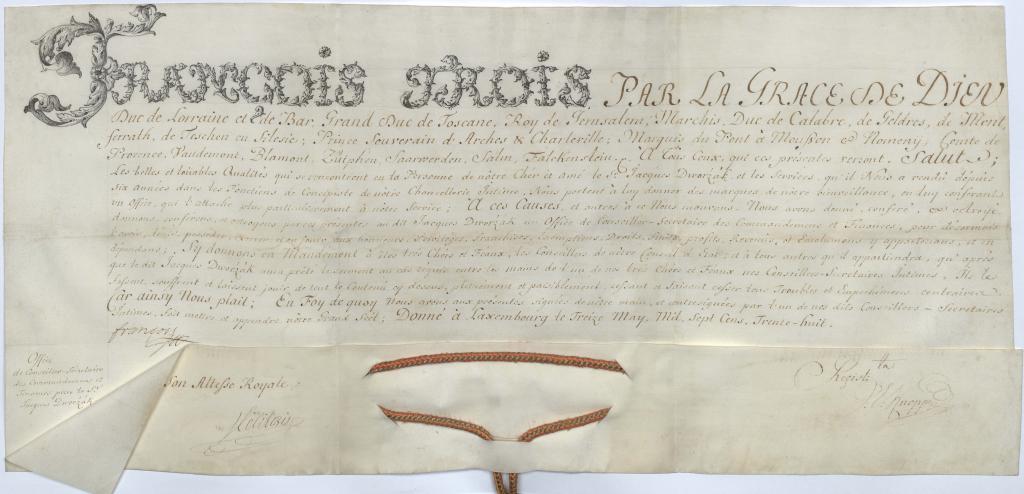 François Trois PAR LA GRACE DE DIEU
Duc de Lorraine et de Bar, Grand Duc de Toscane, Roy de Jerusalem, Marchis, Duc de Calabre, de Geldres, de Mont
ferrath, de Teschen en Silesie; Prince Souverain d'Arches & Charleville; Marquis du Pont à Mousson & Nomeny; Comte de
Provence, Vaudemont, Blamont, Zutphen, Saarwerden, Salm, Falckenstein, A tous Ceux, qui ces présentes verront, Salut;
Les belles et loüables Qualités qui se rencontrent en la Personne de nôtre Cher et Amé le Sr. Jacques Dworžák et les Services, qu'il Nous a rendu depuis
six années dans les Fonctions de Concepiste de nôtre Chancellerie Intime, Nous portent à luy donner des marques de nôtre bienveillance, en luy conferant
un Office, qui l'attache plus particulierement à nôtre Service; A ces Causes, et autres à ce Nous mouvans, Nous avons donné, conferé, & octroyé,
donnons, conferons, et octroyons par ces présentes au dit Jacques Dworžák un Office de Conseiller-Secretaire des Commandemens et Finances, pour désormais
l'avoir, tenir, posséder, exercer, et en jouir aux honneurs, Privileges, Franchises, Exemptions, Droits, fruits, profits, Revenus, et Emolumens y appartenans, et en
dépendans; Sy donnons en Mandement à Nos très Chers et Feaux, les Conseillers de nôtre Conseil d'Etat, et à tous autres qu'il appartiendra, qu'après
que le dit Jacques Dworžák aura prêté le serment au cas requis entre les mains de l'un de nos très Chers et Feaux nos Conseillers-Secretaires Intimes, Ils le
fassent, souffrent et laissent jouir, de tout le Contenu cy dessus, pleinement et paisiblement, cessant et faisant cesser tous Troubles et Empêchemens contraires.
Car ainsy Nous plait; En Foy de quoy Nous avons aux présentes signées de nôtre main, et contresignées par l'un de nos dits Conseillers-Secretaires
Intimes, fait mettre et appendre nôtre Grand Séel; Donné à Laxembourg le Treize May, Mil, Sept Cens, Trente-huit.
françois
Office
de Conseiller-Secretaire
des Commandemens et
Finances pour le Sr.
Jacques Dworžák
Son Altesse Royale
Registr.